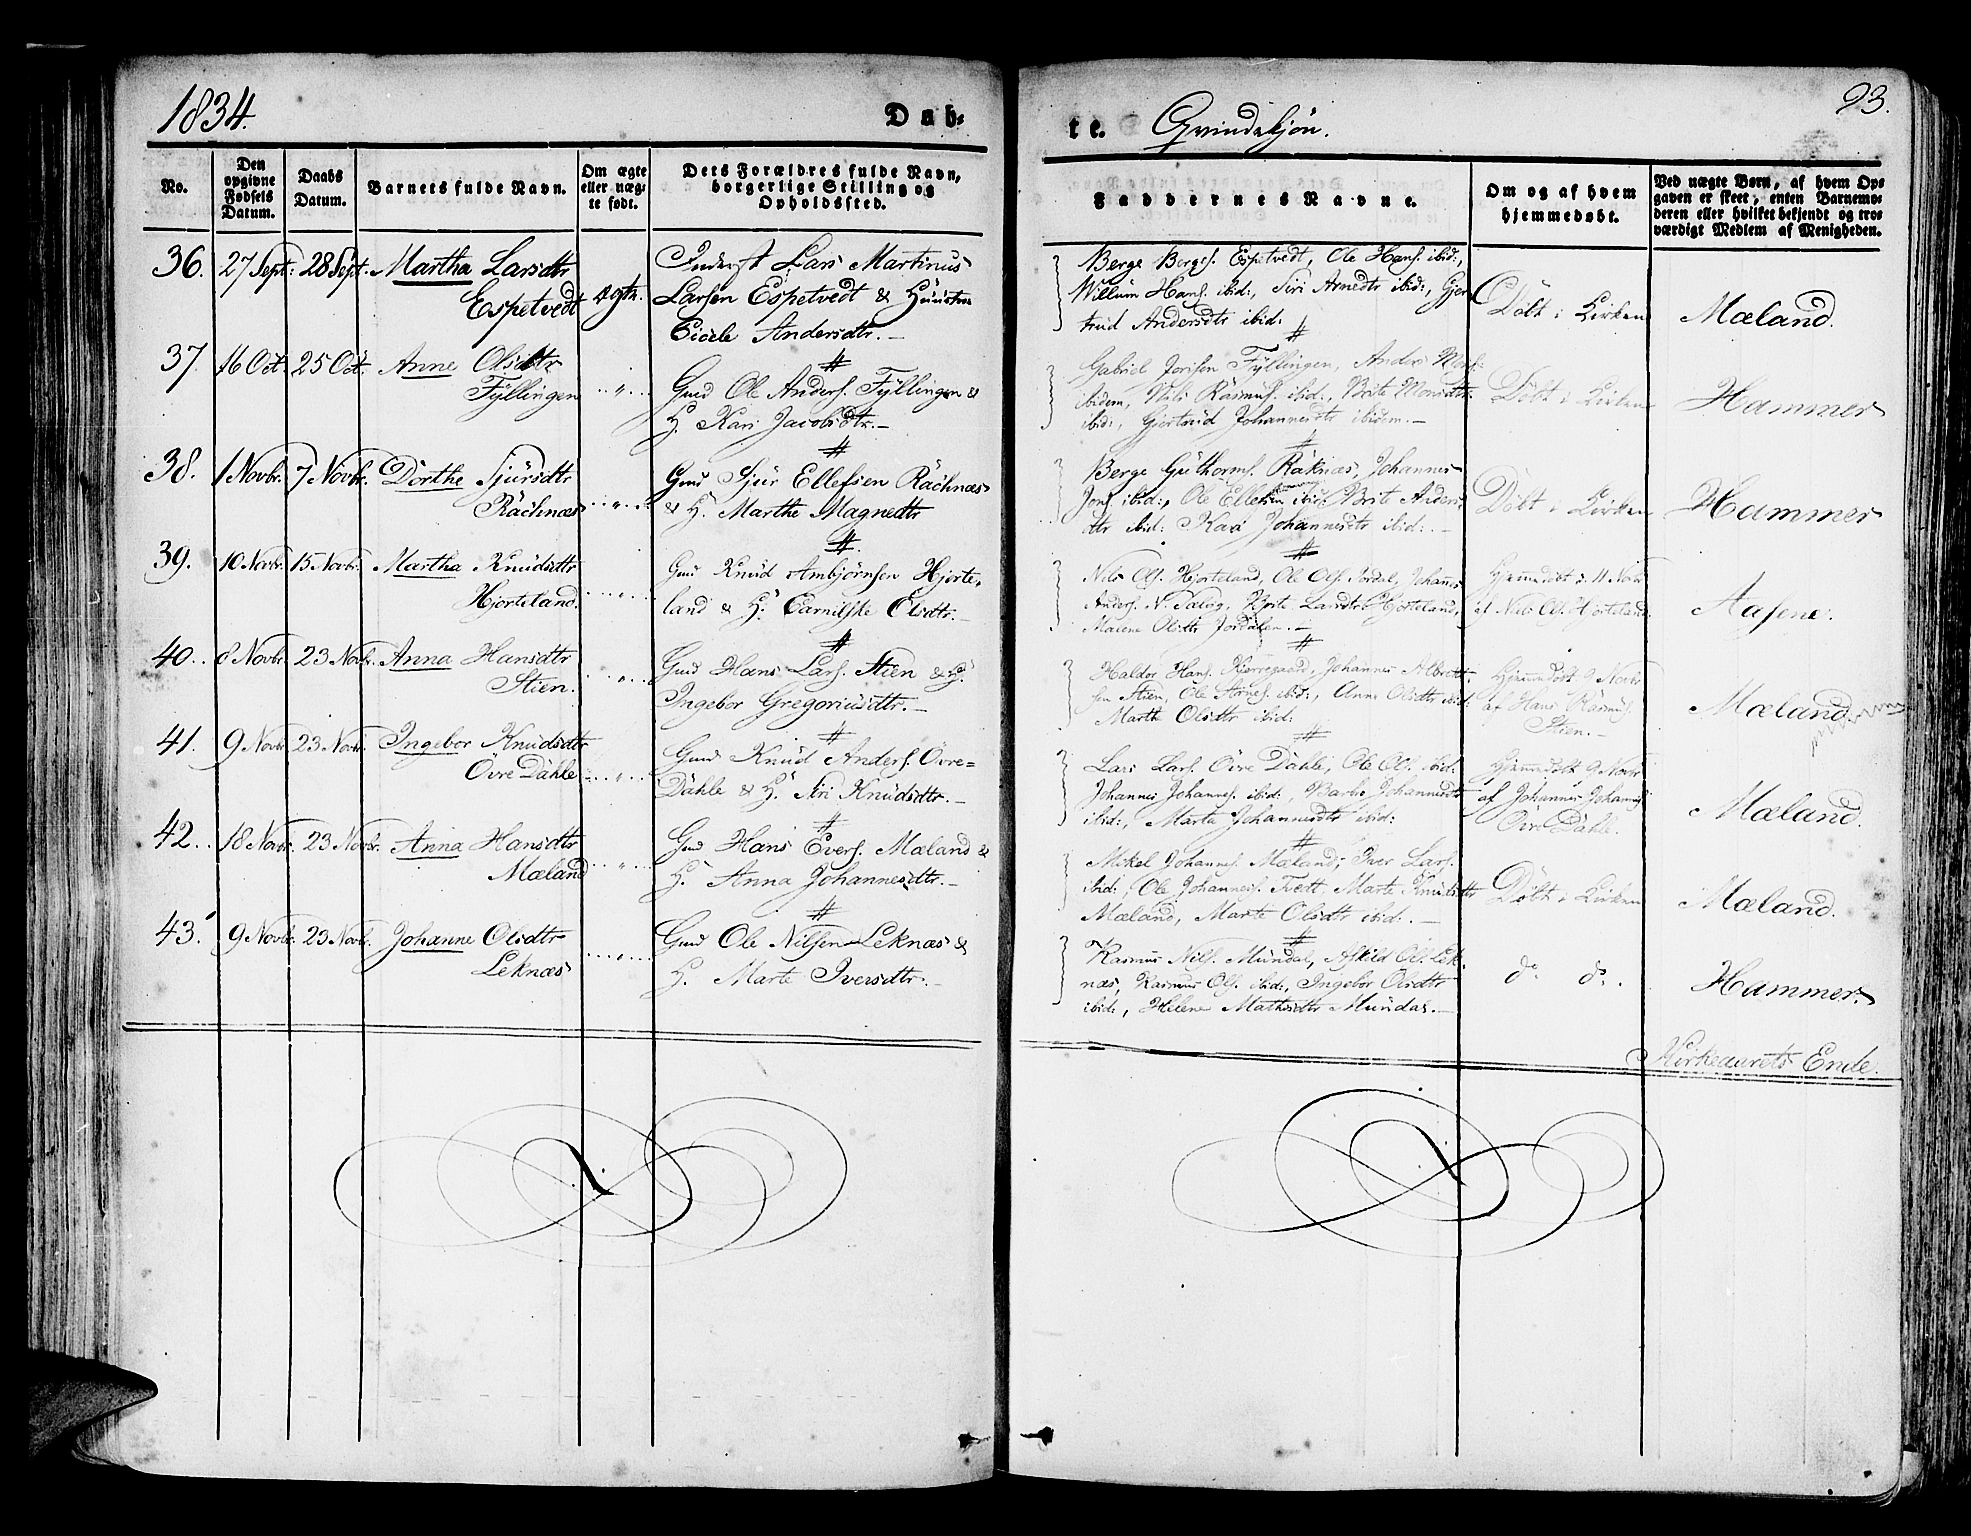 1834.
Døb-
te. Qvindekjøn.
93.
No.
Den opgivne Fødsels Datum.
Daabs Datum.
Barnets fulde Navn.
Om ægte eller uægte født.
Dets Forældres fulde Navn, borgerlige Stilling og Opholdssted.
Faddernes Navne.
Om og af hvem hjemmedøbt.
Ved uægte Børn, af hvem Opgaven er skeet, enten Barnemoderen eller hvilket bekjendt og troværdigt Medlem af Menigheden.
36. 27 Sept: 28 Sept. Martha Larsdtr
Espetvedt ægte.
Inderst Lars Martinus
Larsen Espetvedt & Huustru
Cicele Andersdtr.
Berge Berges. Espetvedt, Ole Hans. ibid:,
Willum Hans. ibid:, Siri Arnedtr ibid:, Gjer
trud Andersdtr ibid:
Døbt i Kirken
Mæland.
37. 16 Oct. 25 Oct. Anne Olsdtr
Fyllingen
Gmd Ole Anders. Fyllingen &
H. Kari Jacobsdtr.
Gabriel Joris̈en Fyllingen, Anders Mons.
ibidem, Nils Rasmus. ibid:, Brite Monsdtr
ibid:, Gjertrud Johannesdtr ibidem.
Døbt i Kirken
Hammer
38. 1 Novbr. 7 Novbr. Dorthe Sjursdtr
Räcknæs
Gmd Sjur Ellefsen Räcknæs
& H. Marthe Magnedtr
Berge Guthorms. Räknæs, Johannes
Jons. ibid:, Ole Ellefsen ibid: Brit Anders-
dtr ibid: Kari Johannesdtr ibid:
Døbt i Kirken
Hammer
39. 10 Novbr. 15 Novbr. Martha Knudsdtr
Hjorteland.
Gmd Knud Ambjørnsen Hjorte-
land & H. Carnilske Olsdtr.
Nils Ols. Hjorteland, Ole Ols. Jordal, Johannes
Anders. N. Brite Larsdtr Hjorteland,
Malene Olsdtr Jordalen.
Hjemmedøbt d. 11 Novbr
af Nils Ols. Hjorteland
Aasene.
40. 8 Novbr. 23 Novbr. Anna Hansdtr
Stien.
Gmd Hans Lars. Stien & H.
Ingebor Gregoriusdtr.
Haldor Hans. Kierregaard, Johannes Albrekt-
sen Stien, Ole Arnes. ibid:, Anne Olsdtr ibid:
Marthe Olsdtr ibid:
Hjemmedøbt 9 Novbr
af Hans Rasmus.
Stien.
Mæland
41. 9 Novbr. 23 Novbr. Ingebor Knudsdtr
Övre Dahle
Gmd Knud Anders. Övre-
Dahle & H. Siri Knudsdtr.
Lars Lars. Övre Dahle, Ole Ols. ibid:
Johannes Johannes. ibid:, Barbro Johannesdtr
ibid:, Marta Johannesdtr ibid:
Hjemmedøbt 9 Novbr
af Johannes Johannes.
Övre Dahle.
Mæland.
42. 18 Novbr. 23 Novbr. Anna Hansdtr
Mæland
Gmd Hans Evers. Mæland &
H. Anna Johannesdtr.
Mikel Johannes. Mæland, Iver Lars.
ibid:, Ole Johannes. Tvedt Marte Knudsdtr
Mæland, Marte Olsdtr ibid:
Døbt i Kirken
Mæland.
43. 9 Novbr. 23 Novb. Johanne Olsdtr
Leknæs
Gmd Ole Nilsen Leknæs &
H. Marte Iversdtr.
Rasmus Nils. Mundal, Askild Ols. Lek-
næs, Rasmus Ols. ibid:, Ingebor Olsdtr
ibid:, Helene Mathisdtr Mundal.
do. do.
Hammer.
Kirkeaarets Ende.